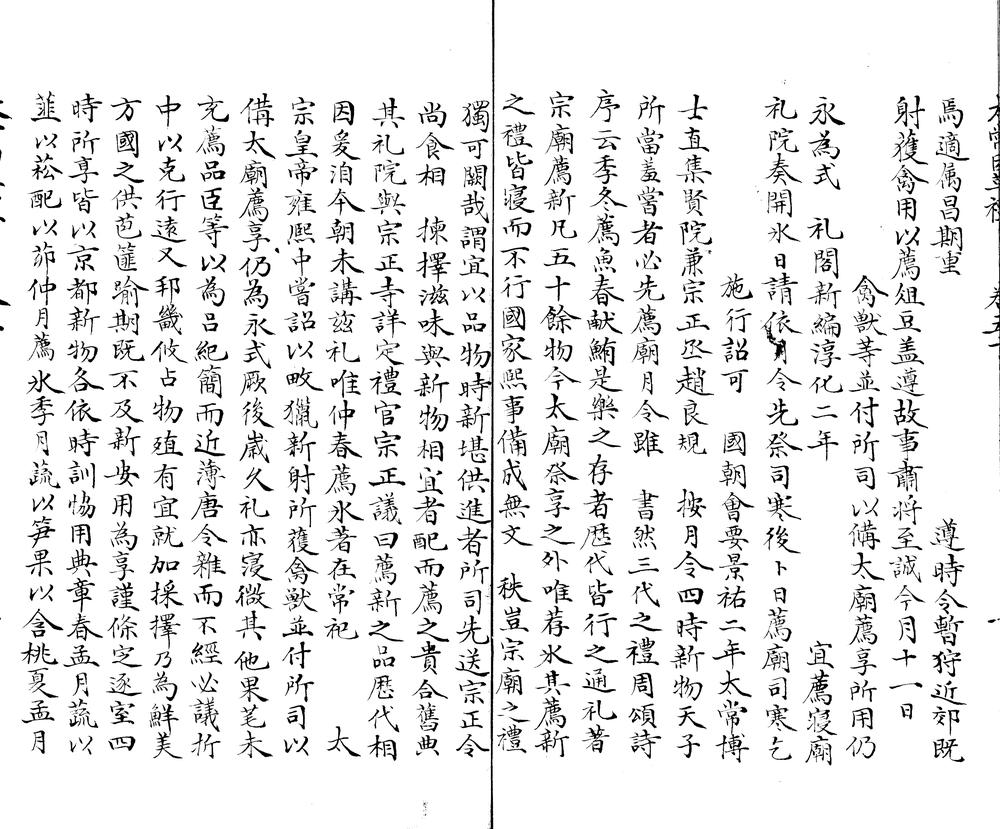 焉適属昌期聿　遵時令暫狩近郊既
射獲禽用以薦俎豆盖遵故事肅将至誠今月十一日
禽獸等並付所司以備太廟薦享所用仍
永為式　礼閣新編淳化二年　宜薦寝廟
礼院奏開氷日請依月令先祭司寒後卜日薦廟司寒乞
施行詔可　國朝會要景祐二年太常博
士直集賢院兼宗正丞趙良規　按月令四時新物天子
所當羞嘗者必先薦廟月令雖　書然三代之禮周頌詩
序云季冬薦魚春献鮪是樂之存者歴代皆行之通礼著
宗廟薦新凡五十餘物今太廟祭享之外唯荐氷其薦新
之禮皆寝而不行國家熙事備成無文　秩豈宗廟之禮
獨可闕哉謂宜以品物時新堪供進者所司先送宗正令
尚食相　揀擇滋味與新物相宜者配而薦之貴合舊典
其礼院與宗正寺詳定禮官宗正議曰薦新之品歴代相
因爰洎今朝未講兹礼唯仲春薦氷著在常祀　太
宗皇帝雍熙中嘗詔以畋獵新射所獲禽獸並付所司以
備太廟薦享仍為永式厥後歳久礼亦寝微其他果芼未
充薦品臣等以為吕紀簡而近薄唐令雜而不經必議折
中以克行遠又邦畿攸占物殖有宜就加採擇乃為鮮美
方國之供苞篚踰期既不及新安用為享謹條定逐室四
時所享皆以京都新物各依時訓恊用典章春孟月蔬以
韮以菘配以茆仲月薦氷季月蔬以笋果以含桃夏孟月